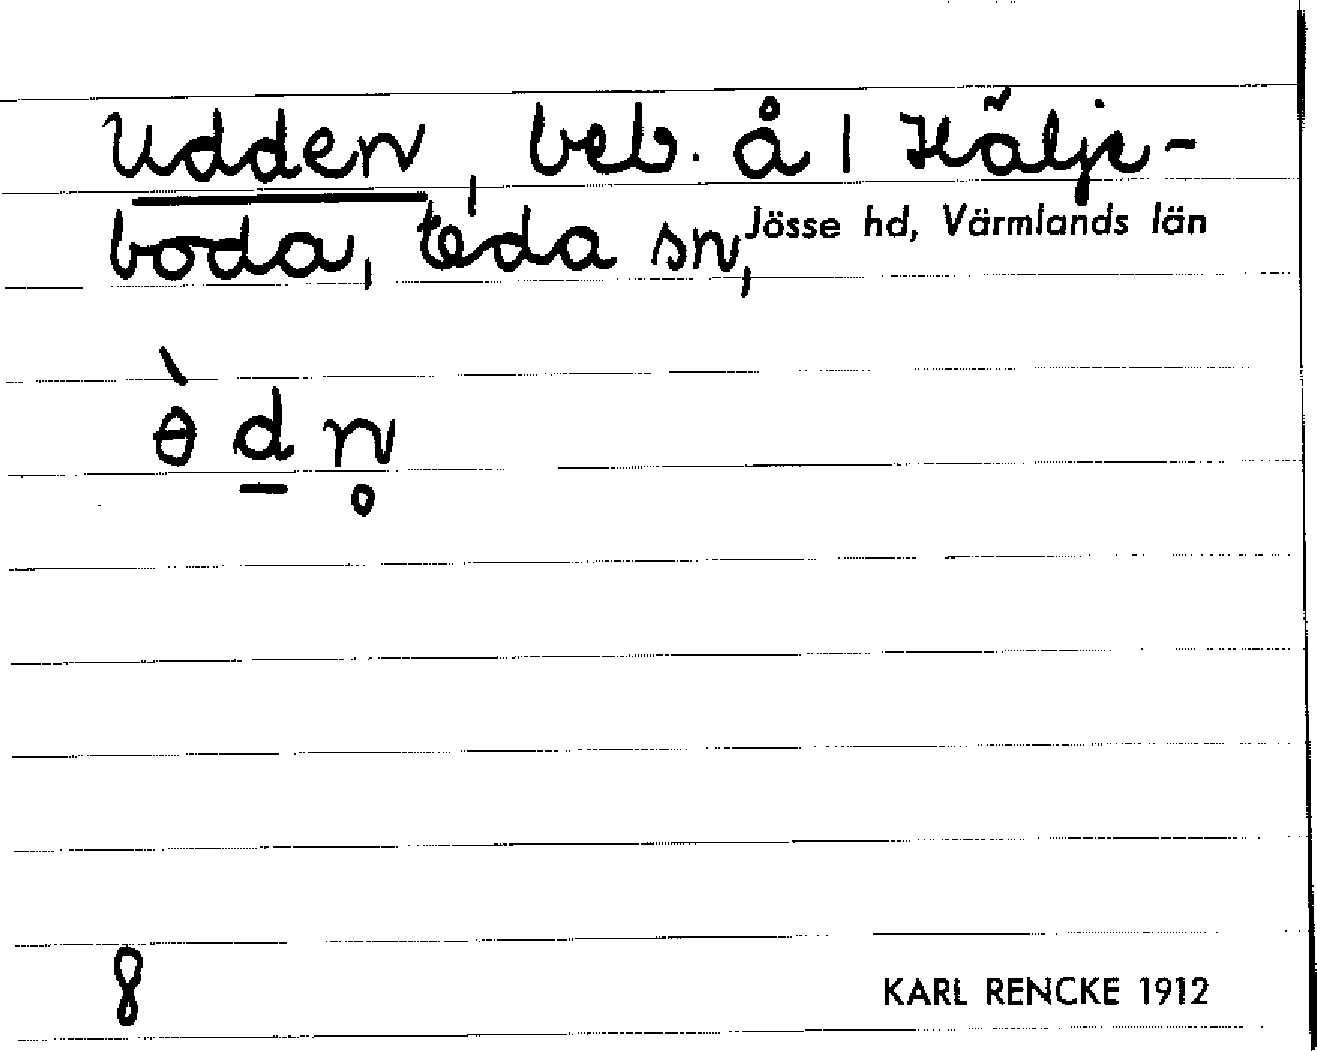 Udden, beb. å 1 Hälje-
boda, Eda sn, Jösse hd, Värmlands län
ɵ̀ d̲ n̥
8
KARL RENCKE 1912